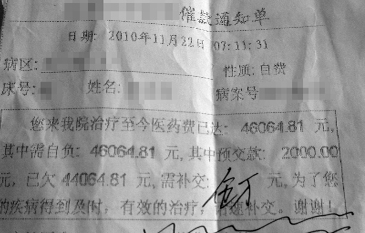 催款通知单
日期: 2010年11月22日 07:11:31
病区: 性质: 自费
床号: 姓名: 病案号
您来我院治疗至今医药费已达: 46064.81 元,
其中需自负: 46064.81 元,其中预交款: 2000.00
元, 已欠 44064.81 元,需补交: 元,为了您
的疾病得到及时, 有效的治疗, 速补交。谢谢!